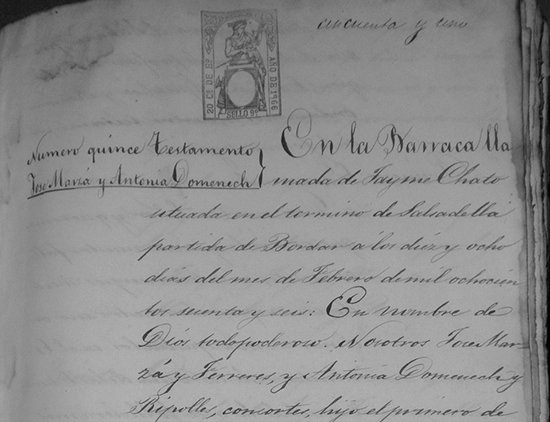 cincuenta y uno
20 Cs DE Eo
AÑO DE 1866
SELLO 9º
Numero quince Testamento
Jose Marzá y Antonia Domenech
En la Barraca lla
mada de Jayme Chato
situada en el termino de Salsadellá
partida de Bordar á los diez y ocho
dias del mes de Febrero de mil ochocien
tos sesenta y seis: En nombre de
Diós todopoderoso. Nosotros Jose Mar-
zá y Ferreres, y Antonia Domenech y
Ripolles, consortes, hijo el primero de